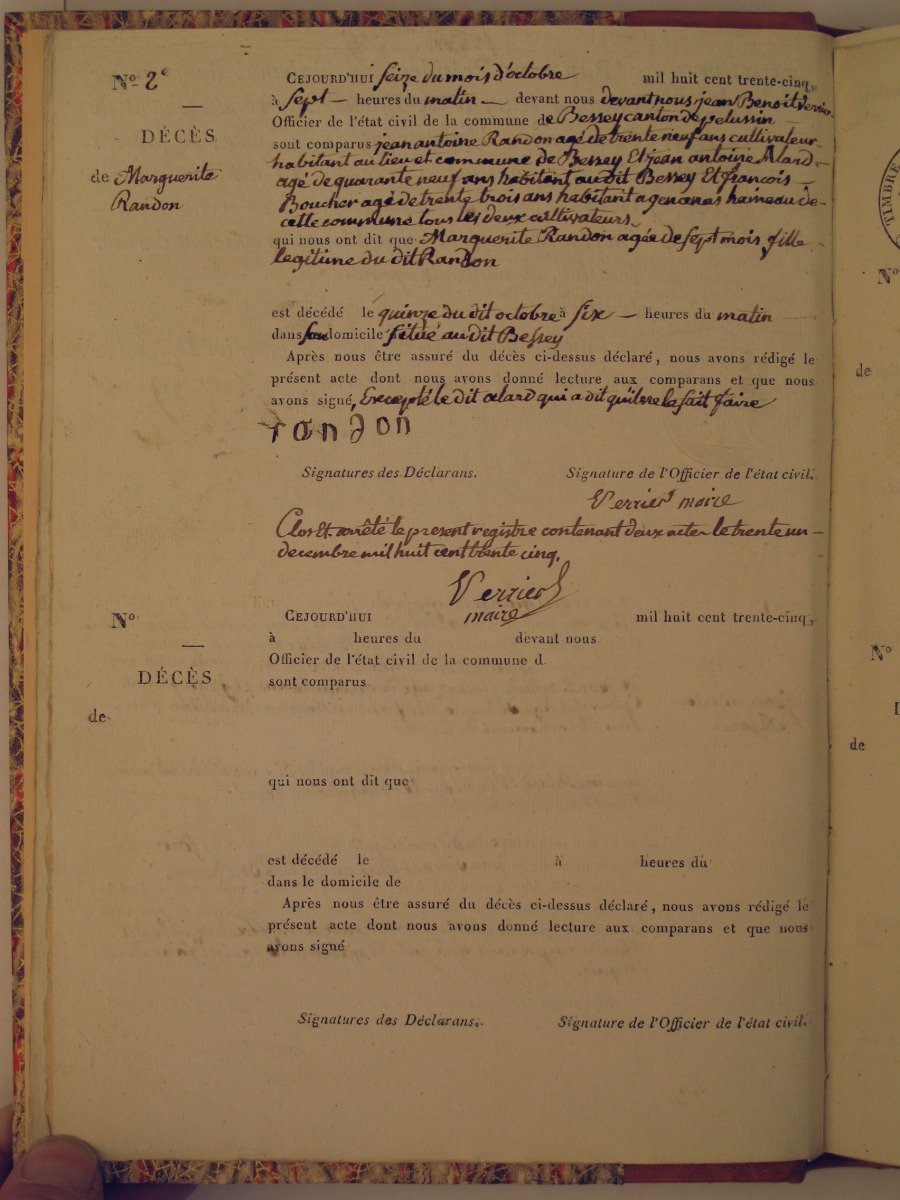 No 2e
DÉCÈS
de Marguerite
Randon
CEJOURD'HUI seize du mois d'octobre mil huit cent trente-cinq,
à sept heures du matin devant nous devant nous jean Benoit Verrier
Officier de l'état civil de la commune de Bessey canton de pelussin
sont comparus jean antoine Randon agé de trente neuf ans cultivateur
habitant au lieu et commune de Bessey Et jean antoine Alard
agé de quarante neuf ans habitant au dit Bessey Et françois
Boucher agé de trente trois ans habitant a hameau de
cette commune tous les deux cultivateurs
qui nous ont dit que Marguerite Randon agée de sept mois fille
legitime du dit Randon
est décédé le quinze du dit octobre à six heures du matin
dans son domicile situé au dit Bessey
Après nous être assuré du décès ci-dessus déclaré, nous avons rédigé le
présent acte dont nous avons donné lecture aux comparans et que nous
avons signé, Excepté le dit alard qui a dit quil ne le sait faire
randon
Signatures des Déclarans. Signature de l'Officier de l'état civil.
Verrier maire
Clos Et arrêté le present registre contenant deux actes le trente un
decembre mil huit cent trente cinq.
Verrier
maire
No
DÉCÈS
de
CEJOURD'HUI mil huit cent trente-cinq,
à heures du devant nous
Officier de l'état civil de la commune d
sont comparus
qui nous ont dit que
est décédé le à heures du
dans le domicile de
Après nous être assuré du décès ci-dessus déclaré, nous avons rédigé le
présent acte dont nous avons donné lecture aux comparans et que nous
avons signé
Signatures des Déclarans. Signature de l'Officier de l'état civil.
TIMBRE
No
de
No
de